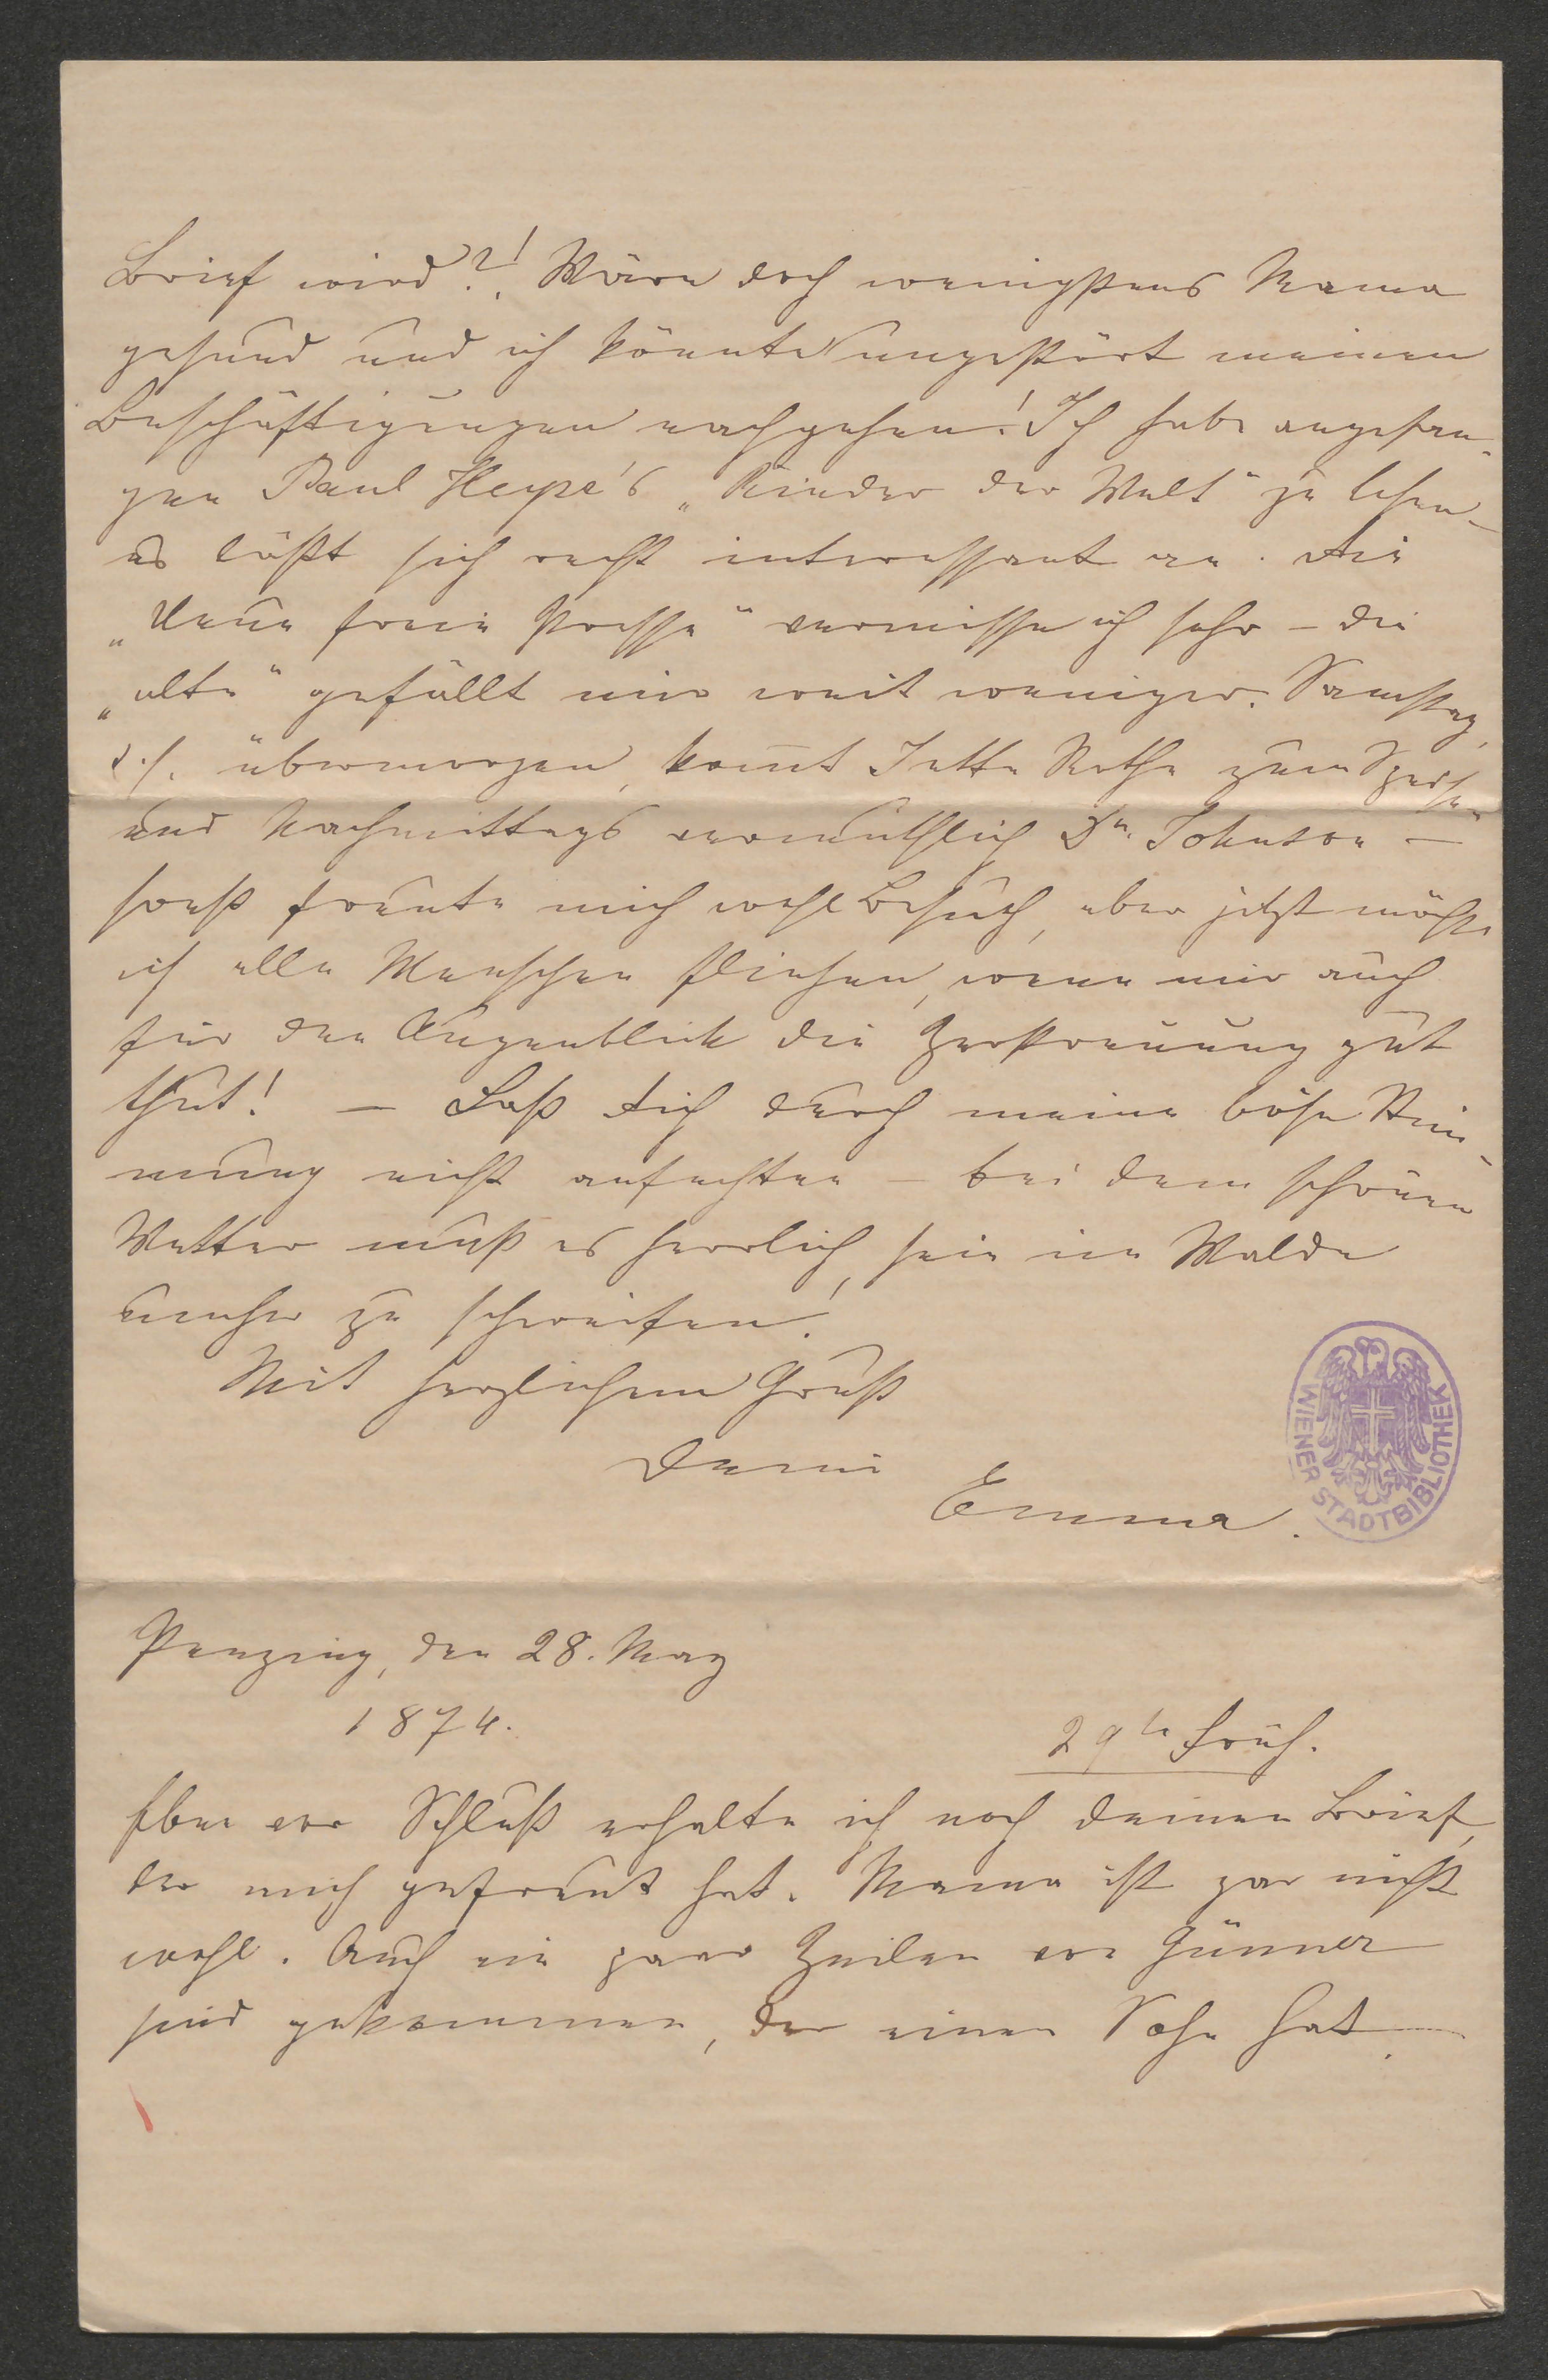 Brief wird?! Wäre doch wenigstens Mama
gesund und ich könnte ungestört meinen
Beschäftigungen nachgehen! Ich habe angefan-
gen Paul Heyse's „Kinder der Welt" zu lesen –
es läßt sich recht interessant an. Die
„Neue freie Presse" vermisse ich sehr – die
„alte" gefällt mir weit weniger. Samstag,
d.h. übermorgen, kom̅t Jette Rothe zum Speisen
und Nachmittags vermuthlich Dr. Johnson –
sonst freute mich wohl Besuch, aber jetzt möchte
ich alle Menschen fliehen, wenn mir auch
für den Augenblick die Zerstreuung gut
thut! – Laß Dich durch meine böse Stim-
mung nicht anfechten – bei dem schönen
Wetter muß es herrlich sein im Walde
umher zu schweifen!
Mit herzlichem Gruß
Deine
Emma.
WIENER STADTBIBLIOTHEK
Penzing, den 28. May
1874.
29te früh.
Eben vor Schluß erhalte ich noch Deinen Brief,
der mich gefreut hat. Mama ist gar nicht
wohl. Auch ein paar Zeilen von Günner
sind gekommen, der einen Sohn hat.